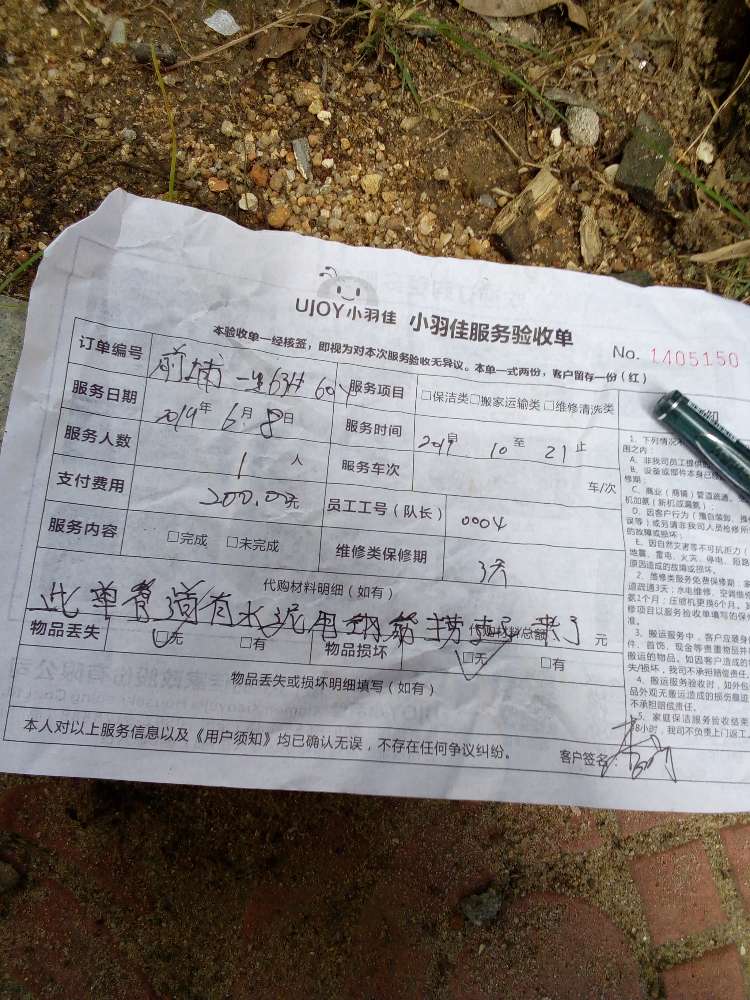 UJOY小羽佳 小羽佳服务验收单
No. 1405150
本验收单一经核签，即视为对本次服务验收无异议。本单一式两份，客户留存一份（红）
订单编号 前埔 服务项目 □保洁类□搬家运输类□维修清洗类
服务日期 2019年6月8日 服务时间 10至21止
服务人数 1人 服务车次 车/次
支付费用 200.00元 员工工号（队长） 0004
服务内容 □完成 □未完成 维修类保修期 3天
代购材料明细（如有）
此单管道有水泥用钢筋捞 来了
代购材料总额 元
物品丢失 □无 □有 物品损坏 □无 □有
物品丢失或损坏明细填写（如有）
本人对以上服务信息以及《用户须知》均已确认无误，不存在任何争议纠纷。
客户签名：
知
1、下列情况
围之内：
A、非我司员工提供
B、设备或部件本身已
修期；
C、商业（商铺）管道疏通、
机加氨（新机或漏氨）；
D、因客户行为（擅自装卸、
误等）或另请非我司人员检修所
的故障或损坏；
E、因自然灾害等不可抗拒力（
地震、雷电、火灾、停电、短路
原因造成的故障或损坏。
2、维修类服务免费保修期：
道疏通3天；水电维修、空调维修
氨1个月；压缩机更换6个月。
修项目以服务验收单填写的保
准。
3、搬运服务中，客户应随身
件、首饰、现金等贵重物品并
搬运的物品。如因客户造成的
失/损坏，我司不承担赔偿责任。
4、搬运服务验收时，如外包
品外观无搬运造成的损伤痕迹
不承担赔偿责任。
5、家庭保洁服务验收结束
48小时，我司不负责上门返工